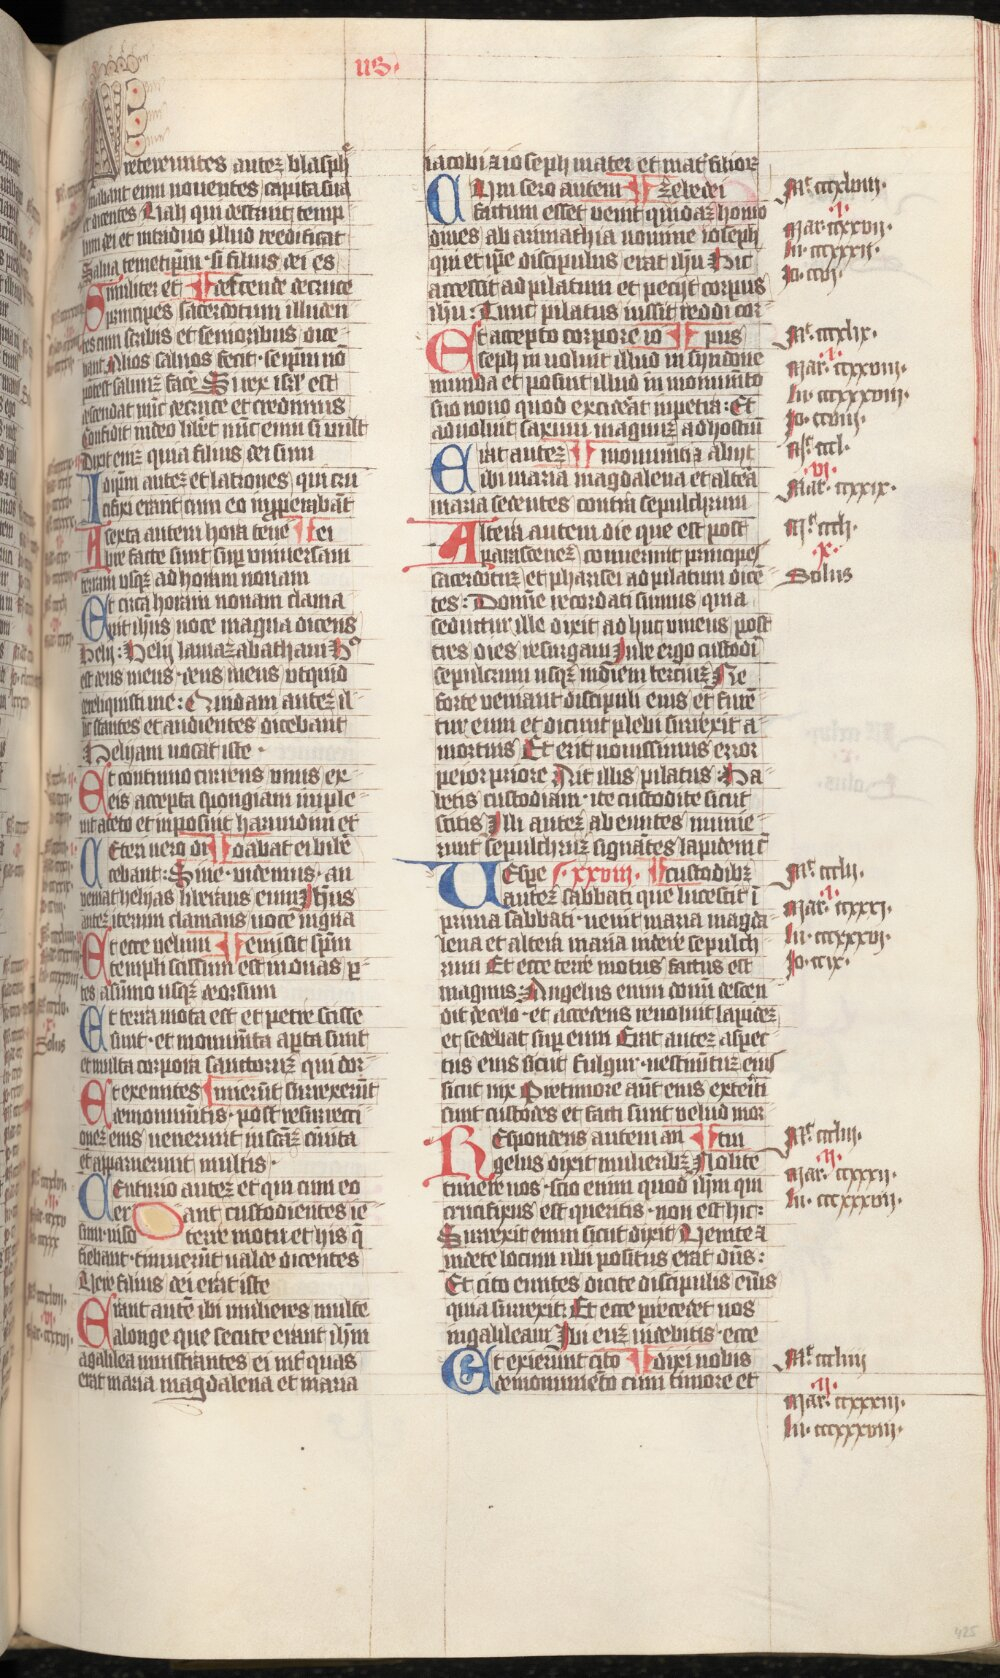 us.
Pretereuntes autez blasph
mabant eum mouentes capita sua
et dicentes Vah qui destruit temp
lum dei et in triduo illud reedificat
Salua temetipm · si filius dei es
Similiter et descende de cruce
principes sacerdotum illuden
tes cum scribis et senioribus dice
bant Alios saluos fecit · seipm no
potest saluuz face Si rex isrl est
descendat nuc de cruce et credimus
Confidit in deo libet nuc eum si uult
Dixit enz quia filius dei sum
Idipm autez et latrones qui cru
cifixi erant cum eo inpperabat
A sexta autem hora tene ei
bre facte sunt sup vniuersam
terram usqz ad horam nonam
Et circa horam nonam clama
uit ihus uoce magna dicens
Hely: Hely lamazabathani H°
est deus meus · deus meus utquid
dereliquisti me: Quidam autez il
lic stantes et audientes dicebant
Helyam uocat iste ·
Et continuo currens vnus ex
eis accepta spongiam imple
uit aceto et inposuit harundini et
Ceteri uero di dabat ei bibe
cebant: Sine · uidemus · an
ueniat helyas liberans eum Ihus
autez iterum clamans uoce magna
Et ecce velum emisit spm
templi scissum est in duas p
tes a sumo usqz deorsum
Et terra mota est et petre scisse
sunt · et monumita apta sunt
et multa corpora sanctoruz qui dor
Et exeuntes mierut surrexerut
de monumtis · post resurrecti
onez eius uenerunt in scaz ciuita
et apparuerunt multis ·
Centurio autez et qui cum eo
erant custodientes ie
sum · uiso terre motu et his q
fiebant · timuerut ualde dicentes
Vere filius dei erat iste
Erant aute ibi mulieres multe
a longe que secute erant ihm
a galilea ministrantes ei int quas
erat maria magdalena et maria
iacobi z ioseph mater et mat filior
Cum sero autem zebedei
factum esset venit quidaz homo
diues ab arimathia nomine ioseph
qui et ipe discipulus erat ihu Hic
accessit ad pilatum et petijt corpus
ihu: Tunc pilatus iussit reddi cor
Et accepto corpore io pus
seph inuoluit illud in syndone
munda et posuit illud in monumto
suo nouo quod exciderat in petra: Et
aduoluit saxum magnuz ad hostiu
Erat autez monumeti z abijt
ibi maria magdalena et altera
maria sedentes contra sepulchrum
Altera autem die que est post
parasceuez conuenerut principes
sacerdotuz et pharisei ad pilatum dice
tes: Domine recordati sumus quia
seductur ille dixit adhuc viuens post
tres dies resurgam Iube ergo custodi
sepulcrum usqz in diem terciuz Ne
forte veniant discipuli eius et fure
tur eum et dicant plebi surrexit a
mortuis Et erit nouissimus error
peior priore Ait illis pilatus Ha
betis custodiam · ite custodite sicut
scitis Illi autez abeuntes munie
runt sepulchruz signates lapidem c
Vespe xxviii. custodibz
autez sabbati que lucescit i
prima sabbati · uenit maria magda
lena et altera maria uidere sepulch
rum Et ecce terre motus factus est
magnus Angelus enim domi descen
dit de celo · et accedens reuoluit lapidez
et sedebat sup eum Erat autez aspec
tus eius sicut fulgur · uestimtuz eius
sicut nix Pretimore aut eius exteriti
sunt custodes et facti sunt velud mor
Respondens autem an tui
gelus dixit mulieribz Nolite
timere uos · scio enim quod ihm qui
crucifixus est queritis · non est hic:
Surrexit enim sicut dixit Uenite z
uidete locum ubi positus erat dns:
Et cito euntes dicite discipulis eius
quia surrexit: Et ecce precedet uos
in galileam Ibi euz uidebitis · ecce
Et exierunt cito dixi uobis
de monumeto cum timore et
Mt cccxlviii.
.i.
Mar. ccxxvii.
Lu. cccxxxii.
Io. ccvi.
Mt. cccxlix.
.i.
Mar. ccxxviii.
Lu. cccxxxiii.
Io. ccviii.
Mt. cccl.
.vi.
Mar. ccxxix.
Mt. cccli.
.x.
Solus
Mt. ccclii.
.i.
Mar. ccxxxi.
Lu. cccxxxvi.
Io. ccix.
Mt. cccliii.
.ii.
Mar. ccxxxii.
Lu. cccxxxvii.
Mt. cccliiii
.ii.
Mar. ccxxxiii.
Lu. cccxxxviii.
425